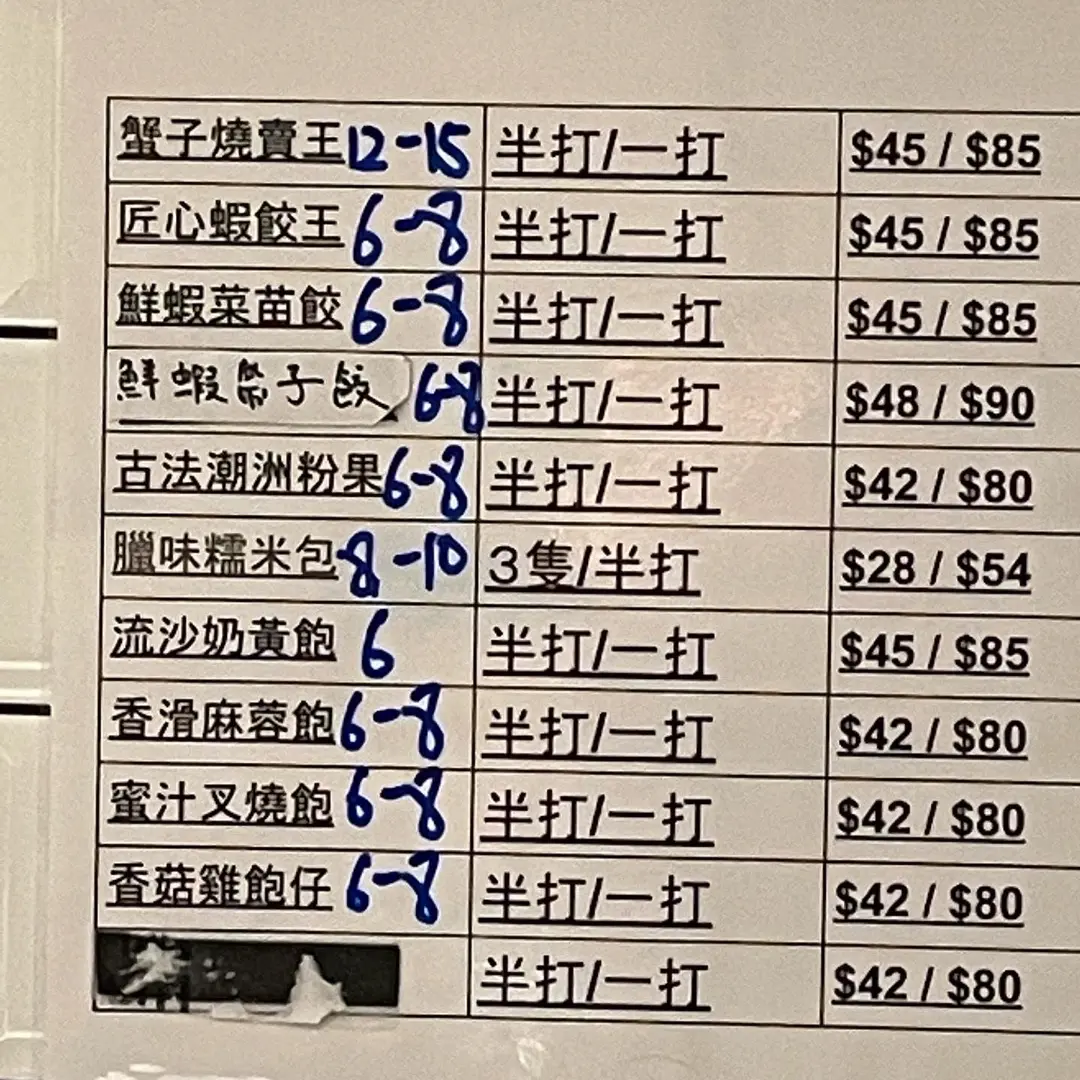 蟹子燒賣王 12-15 半打/一打 $45 / $85
匠心蝦餃王 6-8 半打/一打 $45 / $85
鮮蝦菜苗餃 6-8 半打/一打 $45 / $85
鮮蝦帶子餃 6-8 半打/一打 $48 / $90
古法潮洲粉果 6-8 半打/一打 $42 / $80
臘味糯米包 8-10 3隻/半打 $28 / $54
流沙奶黃飽 6 半打/一打 $45 / $85
香滑麻蓉飽 6-8 半打/一打 $42 / $80
蜜汁叉燒飽 6-8 半打/一打 $42 / $80
香菇雞飽仔 6-8 半打/一打 $42 / $80
半打/一打 $42 / $80